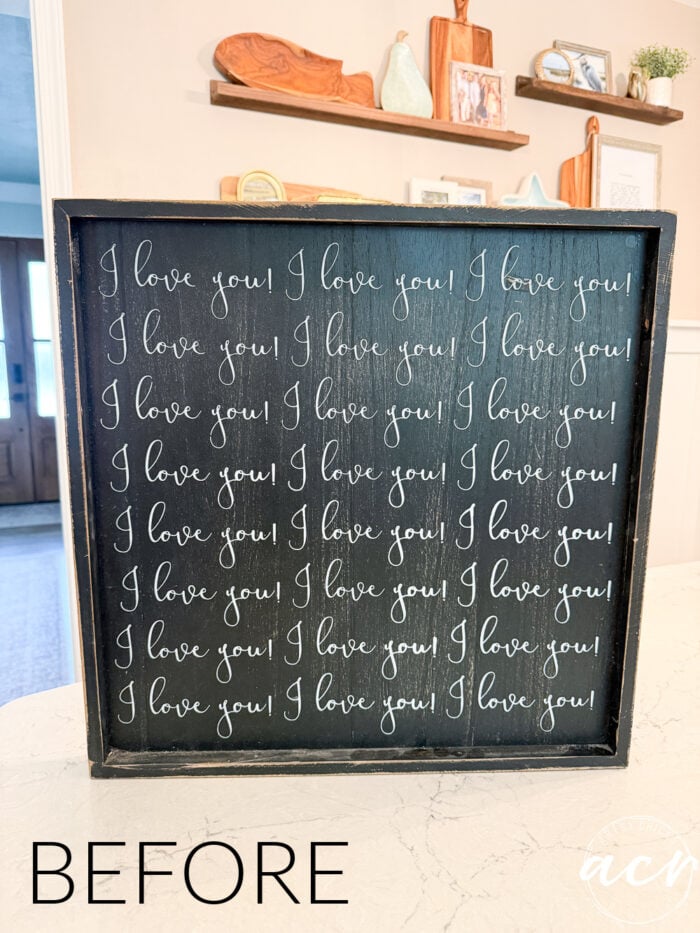 I love you! I love you! I love you!
I love you! I love you! I love you!
I love you! I love you! I love you!
I love you! I love you! I love you!
I love you! I love you! I love you!
I love you! I love you! I love you!
I love you! I love you! I love you!
I love you! I love you! I love you!
BEFORE
acr